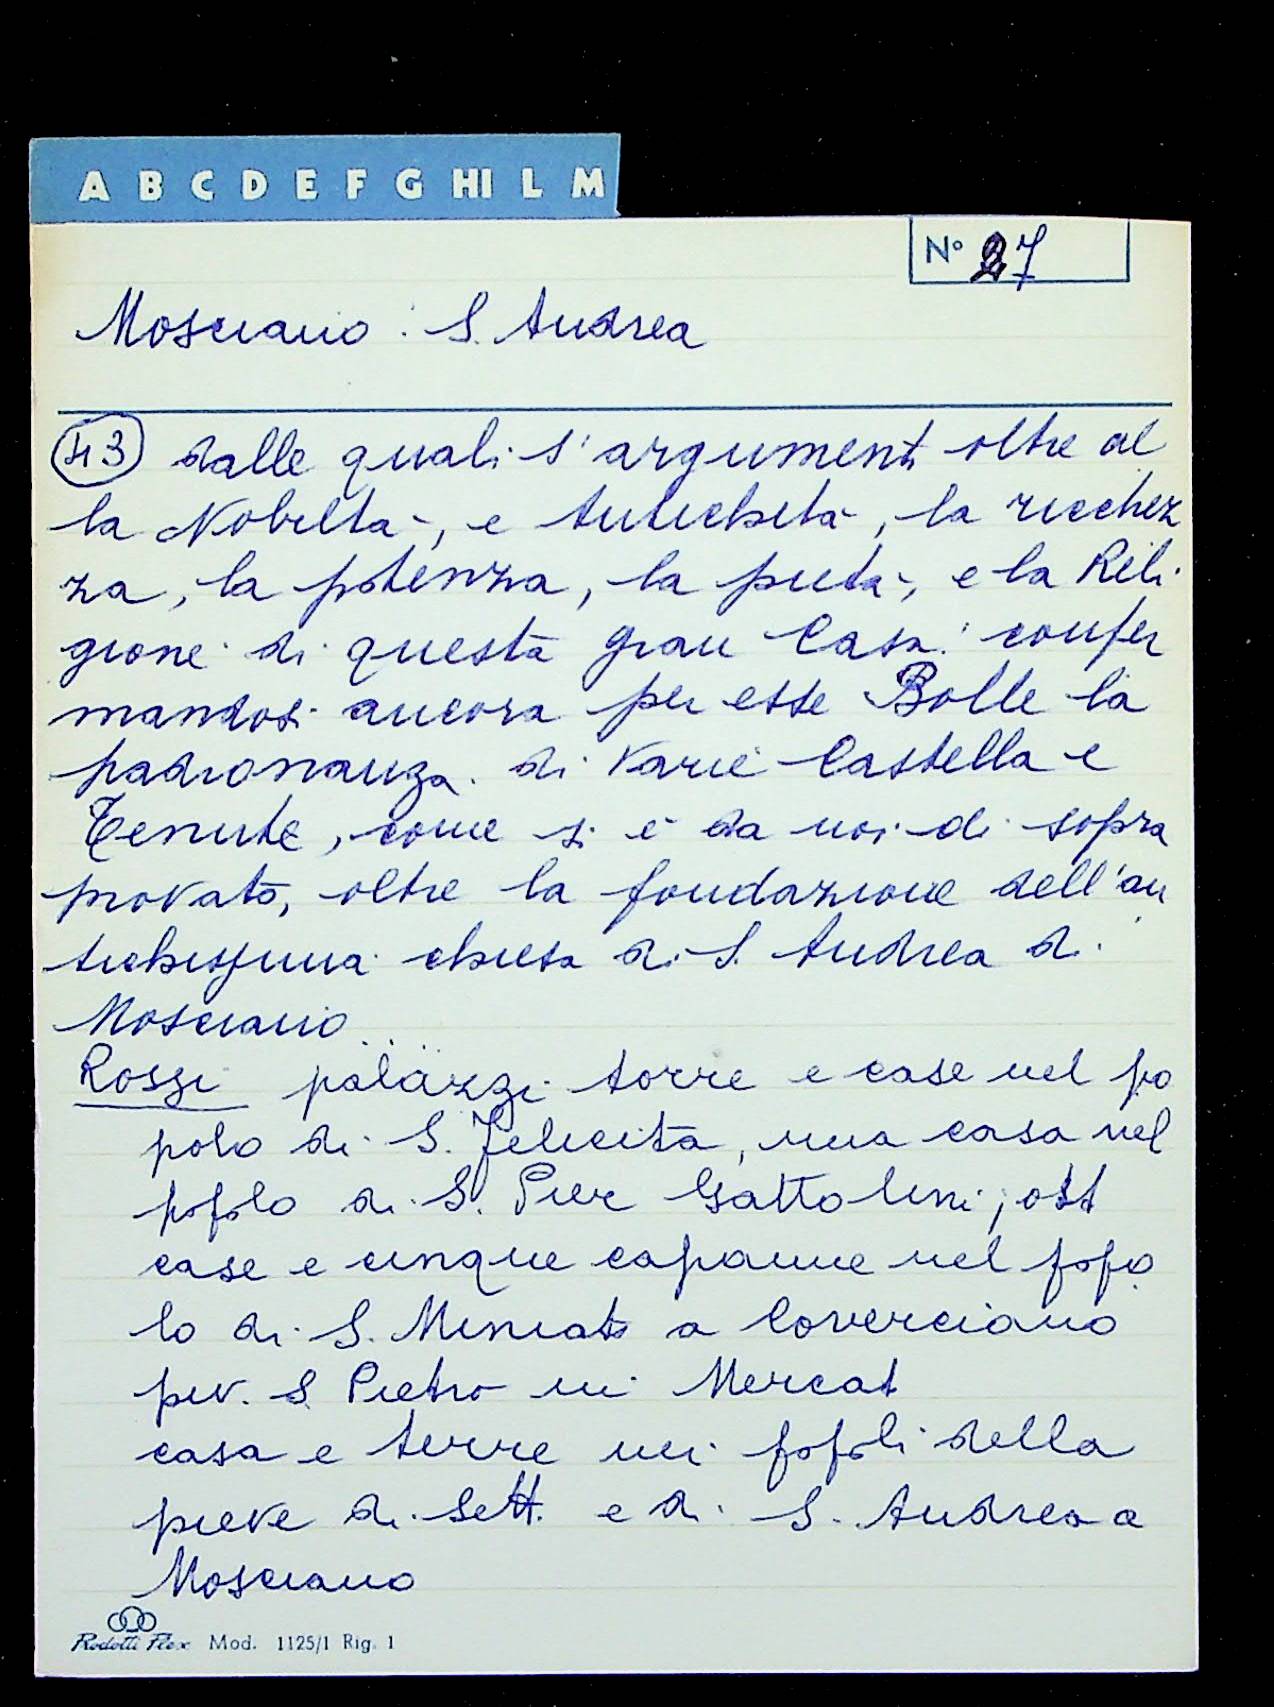 A B C D E F G HI L M
N° 27
Mosciano : S. Andrea
43 dalle quali s'argument oltre al
la Nobiltà, e Antichità, la ricchez
za, la potenza, la pietà, e la Reli
gione di questa gran Casa: confer
mandosi ancora per esse Bolle la
padronanza di varie Castella e
Tenute, come si è da noi di sopra
provato, oltre la fondazione dell'an
tichissima chiesa di S. Andrea di
Mosciano
Rossi palazzi torre e case nel po
polo di S. Felicita, una casa nel
popolo di S. Pier Gattolini; ott
case e cinque capanne nel popo
lo di S. Miniato a Coverciano
piv. S Pietro in Mercat
casa e terre nei popoli della
pieve di Sett. e di S. Andrea a
Mosciano
Rodotti Flex Mod. 1125/1 Rig. 1